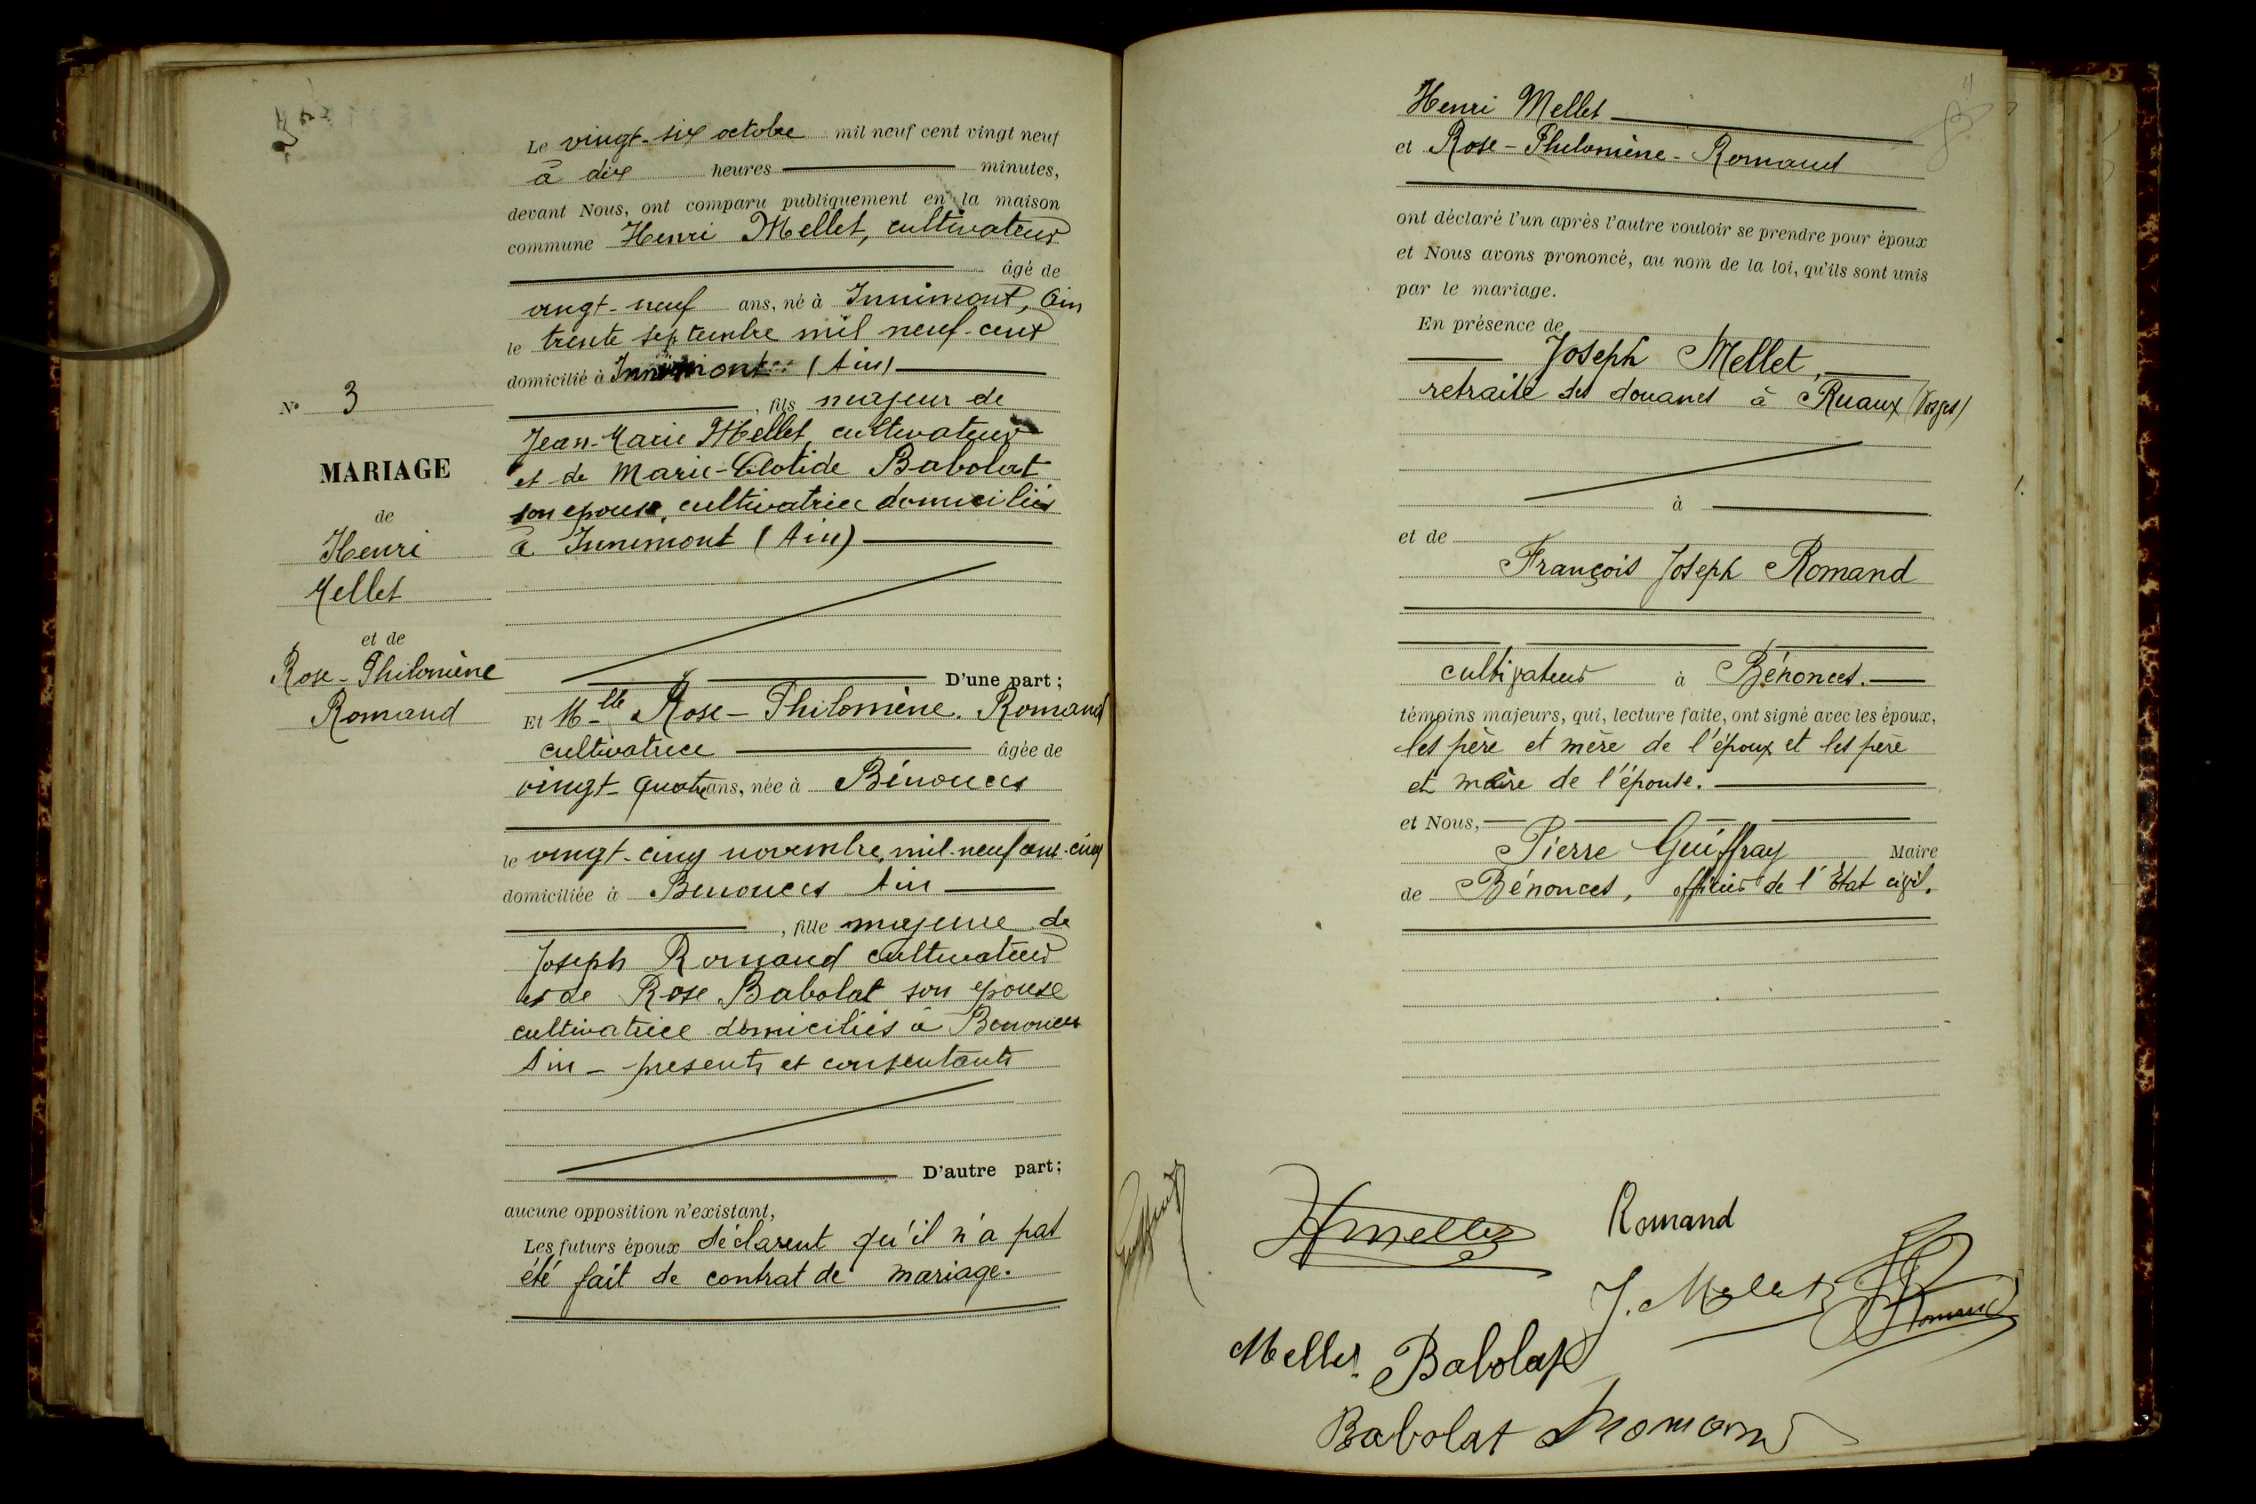 Le vingt-six octobre mil neuf cent vingt neuf
à dix heures minutes,
devant Nous, ont comparu publiquement en la maison
commune Henri Mellet, cultivateur
âgé de
vingt-neuf ans, né à Innimont, Ain
le trente septembre mil neuf-cent
domicilié à Innimont (Ain)
, fils majeur de
Jean-Marie Mellet, cultivateur
et de Marie-Clotide Babolat
son epouse, cultivatrice domiciliés
à Innimont (Ain)
D'une part ;
Et Mlle Rose-Philomène. Romand
cultivatrice âgée de
vingt-quatre ans, née à Bénonces
le vingt-cinq novembre, mil-neuf cent-cinq
domiciliée à Benonces Ain
, fille majeure de
Joseph Romand cultivateur
et de Rose Babolat son epouse
cultivatrice domiciliés à Benonces
Ain - presents et consentants
D'autre part ;
aucune opposition n'existant,
Les futurs époux déclarent qu'il n'a pas
été fait de contrat de mariage.
N° 3
MARIAGE
de
Henri
Mellet
et de
Rose-Philomène
Romand
Henri Mellet
et Rose-Philomène-Romand
ont déclaré l'un après l'autre vouloir se prendre pour époux
et Nous avons prononcé, au nom de la loi, qu'ils sont unis
par le mariage.
En présence de
Joseph Mellet,
retraité des douanes à Ruaux (Vosges)
à
et de
François Joseph Romand
cultivateur à Bénonces.
témoins majeurs, qui, lecture faite, ont signé avec les époux,
les père et mère de l'époux et les père
et mère de l'épouse.
et Nous,
Pierre Guiffray Maire
de Bénonces, officier de l'Etat civil.
HMellet
Romand
J. Melet
Romand
Mellet Babolat
Babolat Romand